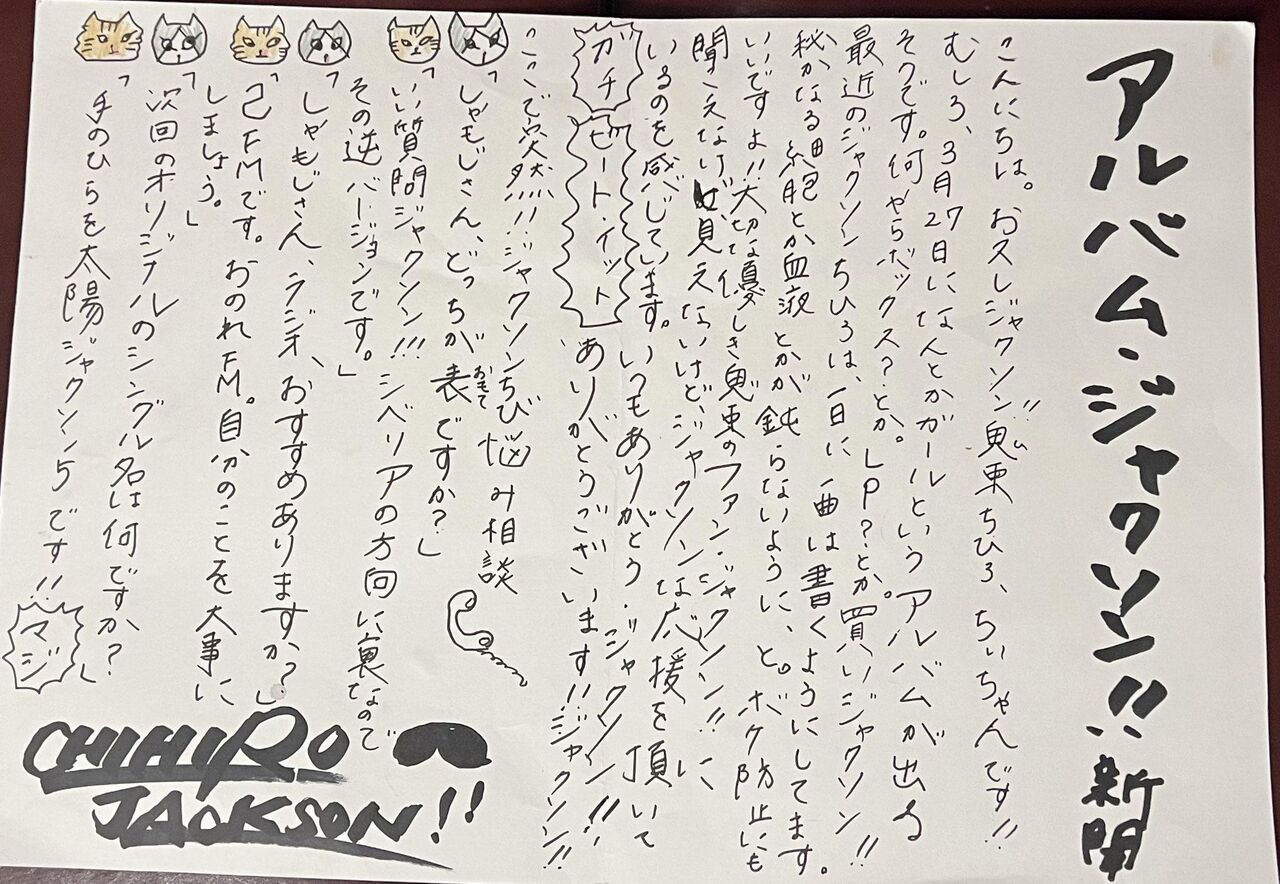 アルバム・ジャクソン!!新聞
こんにちは。お久しジャクソン!!鬼束ちひろ、ちぃちゃんです!!
むしろ、3月27日になんとかガールというアルバムが出る
そうです。何やらボックス?とか。LP?とか。買いジャクソン!!
最近のジャクソンちひろは、一日に一曲は書くようにしてます。
秘かなる細胞とか血液とかが鈍らないように、と。ボケ防止にも
いいですよ!!大切な優しき鬼束のファン・ジャクソン!!に
聞こえないけど、見えないけど、ジャクソンな応援を頂いて
いるのを感じています。いつもありがとう・ジャクソン!!
ガチ
ビート・イット
ありがとうございます!!ジャクソン!!
ここで突然!!!ジャクソンちび悩み相談
「しゃもじさん、どっちが表ですか?」
おもて
「いい質問ジャクソン!!!シベリアの方向に裏なので
その逆バージョンです。」
「しゃもじさん、ラジオ、おすすめありますか?」
「己FMです。おのれFM。自分のことを大事に
しましょう。」
「次回のオリジナルのシングル名は何ですか?」
「手のひらを太陽ジャクソン5です!!」
マジ
CHIHIRO
JACKSON!!